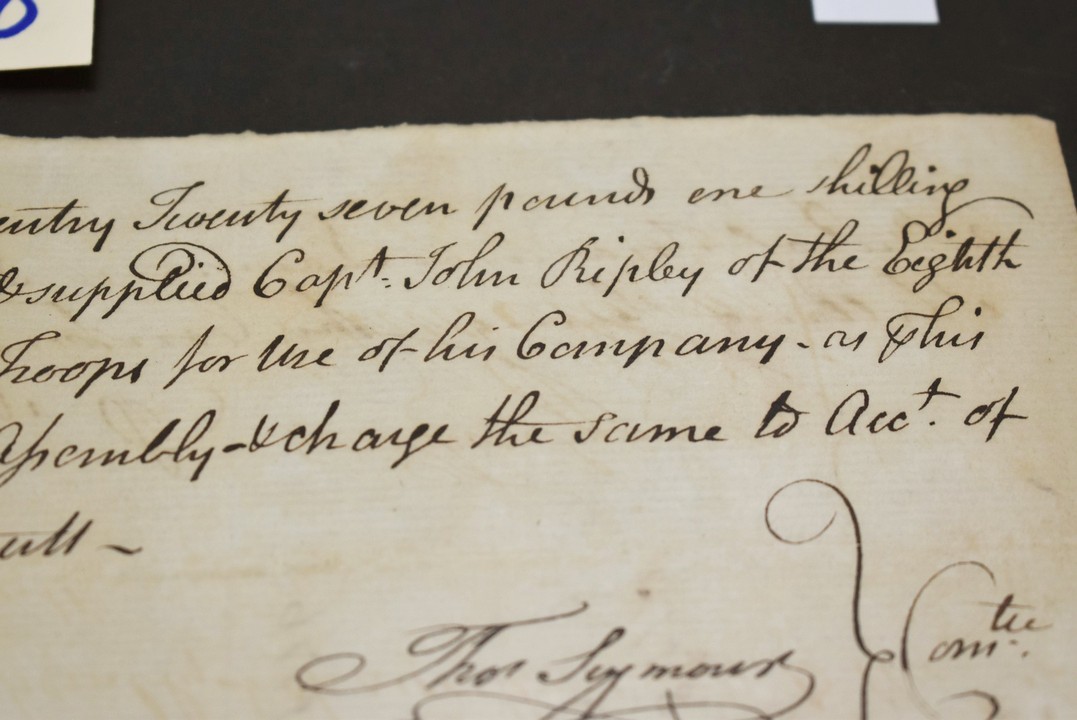 entry Twenty seven pounds one shilling
& supplied Capt. John Ripley of the Eighth
Troops for Use of his Company - as This
Assembly - & charge the same to Acct. of
Thos Seymour } Comtee.